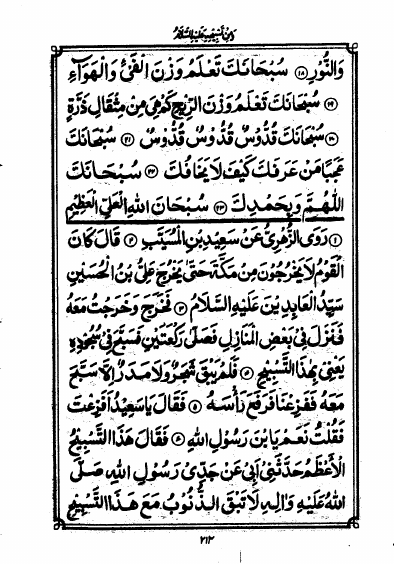 وَالنُّوْرِ ⑱ سُبْحَانَكَ تَعْلَمُ وَزْنَ الْفَيْءِ وَالْهَوَآءِ
⑲ سُبْحَانَكَ تَعْلَمُ وَزْنَ الرِّيْحِ كَمْ هِيَ مِنْ مِثْقَالِ ذَرَّةٍ
⑳ سُبْحَانَكَ قُدُّوْسٌ قُدُّوْسٌ قُدُّوْسٌ ㉑ سُبْحَانَكَ
عَجَبًا مَنْ عَرَفَكَ كَيْفَ لَا يَخَافُكَ ㉒ سُبْحَانَكَ
اللّٰهُمَّ وَبِحَمْدِكَ ㉓ سُبْحَانَ اللهِ الْعَلِيِّ الْعَظِيْمِ
① رَوَى الزُّهْرِيُّ عَنْ سَعِيْدِ بْنِ الْمُسَيَّبِ ② قَالَ كَانَ
الْقَوْمُ لَا يَخْرُجُوْنَ مِنْ مَكَّةَ حَتّٰى يَخْرُجَ عَلِيُّ بْنُ الْحُسَيْنِ
سَيِّدُ الْعَابِدِيْنَ عَلَيْهِ السَّلَامُ ③ فَخَرَجَ وَخَرَجْتُ مَعَهُ
فَنَزَلَ فِيْ بَعْضِ الْمَنَازِلِ فَصَلّٰى رَكْعَتَيْنِ فَسَبَّحَ فِيْ سُجُوْدِهِ
يَعْنِيْ بِهٰذَا التَّسْبِيْحِ ④ فَلَمْ يَبْقَ شَجَرٌ وَلَا مَدَرٌ اِلَّا سَبَّحَ
مَعَهُ فَفَزِعْنَا فَرَفَعَ رَأْسَهُ ⑤ فَقَالَ يَا سَعِيْدُ اَفَزِعْتَ
فَقُلْتُ نَعَمْ يَا بْنَ رَسُوْلِ اللهِ ⑥ فَقَالَ هٰذَا التَّسْبِيْحُ
الْاَعْظَمُ حَدَّثَنِيْ اَبِيْ عَنْ جَدِّيْ رَسُوْلِ اللهِ صَلَّى
اللهُ عَلَيْهِ وَاٰلِهِ لَا تَبْقَى الذُّنُوْبُ مَعَ هٰذَا التَّسْبِيْحِ
۲۱۲